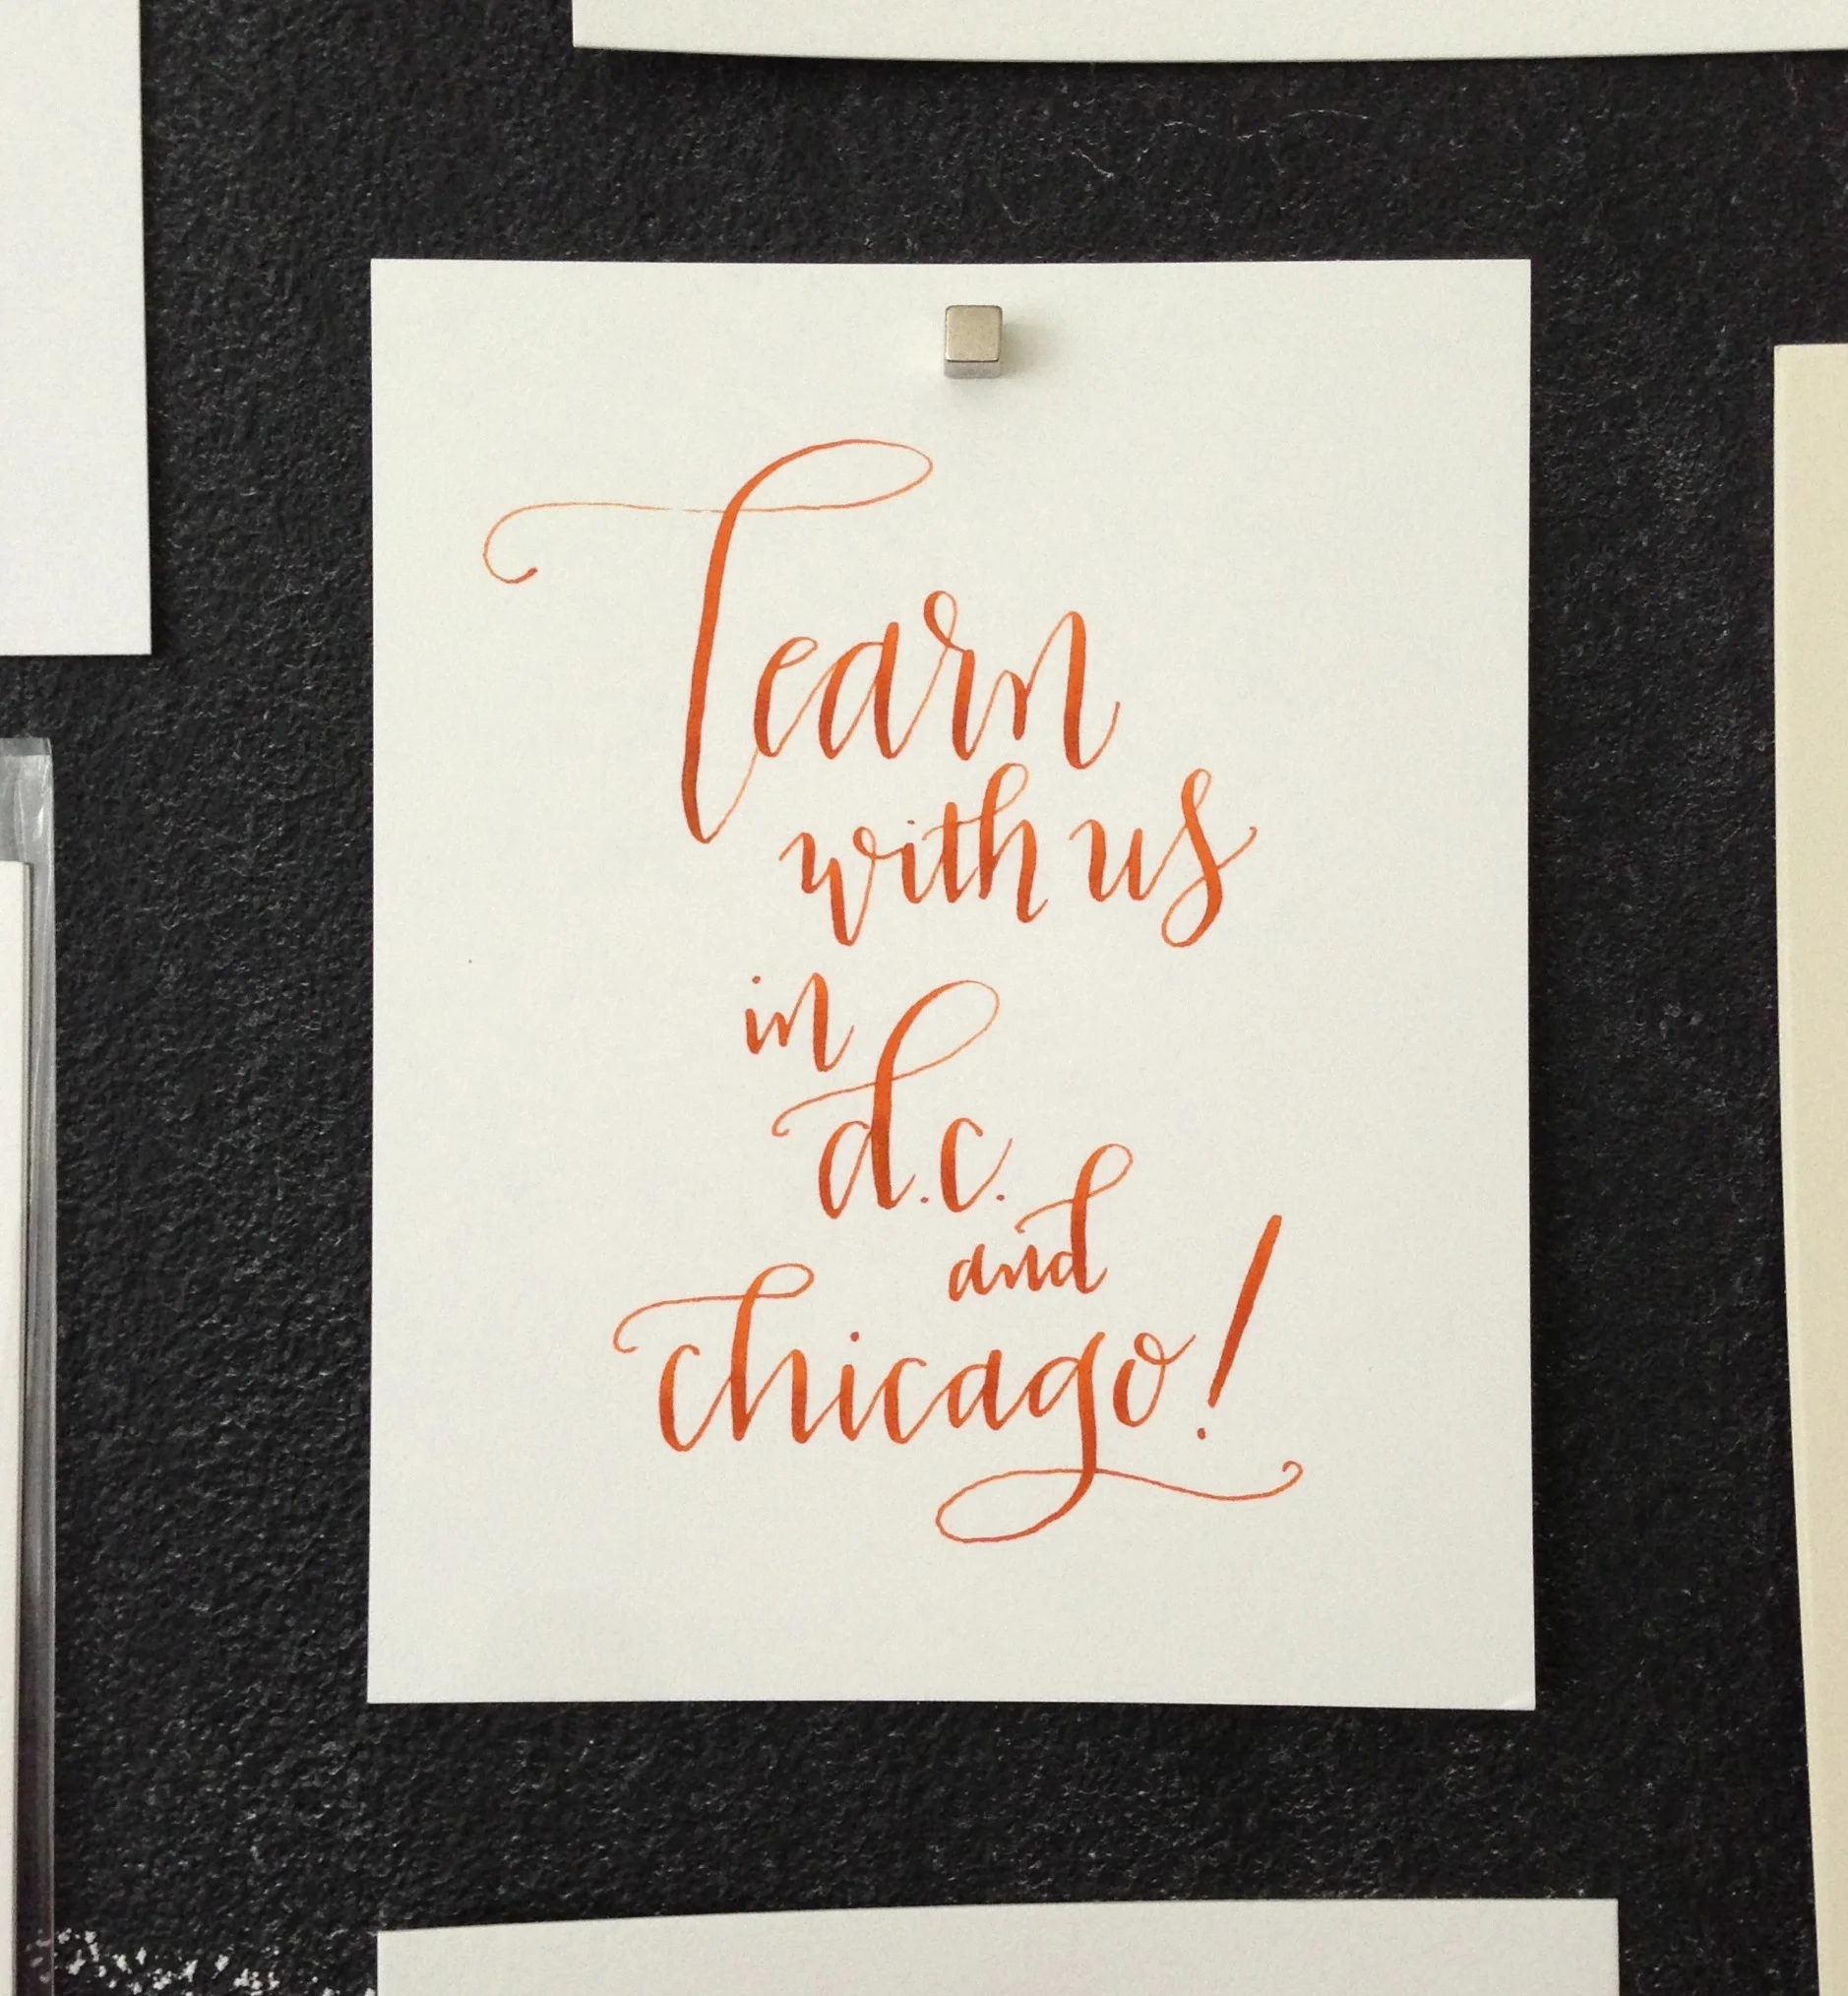 learn
with us
in
d.c.
and
chicago!